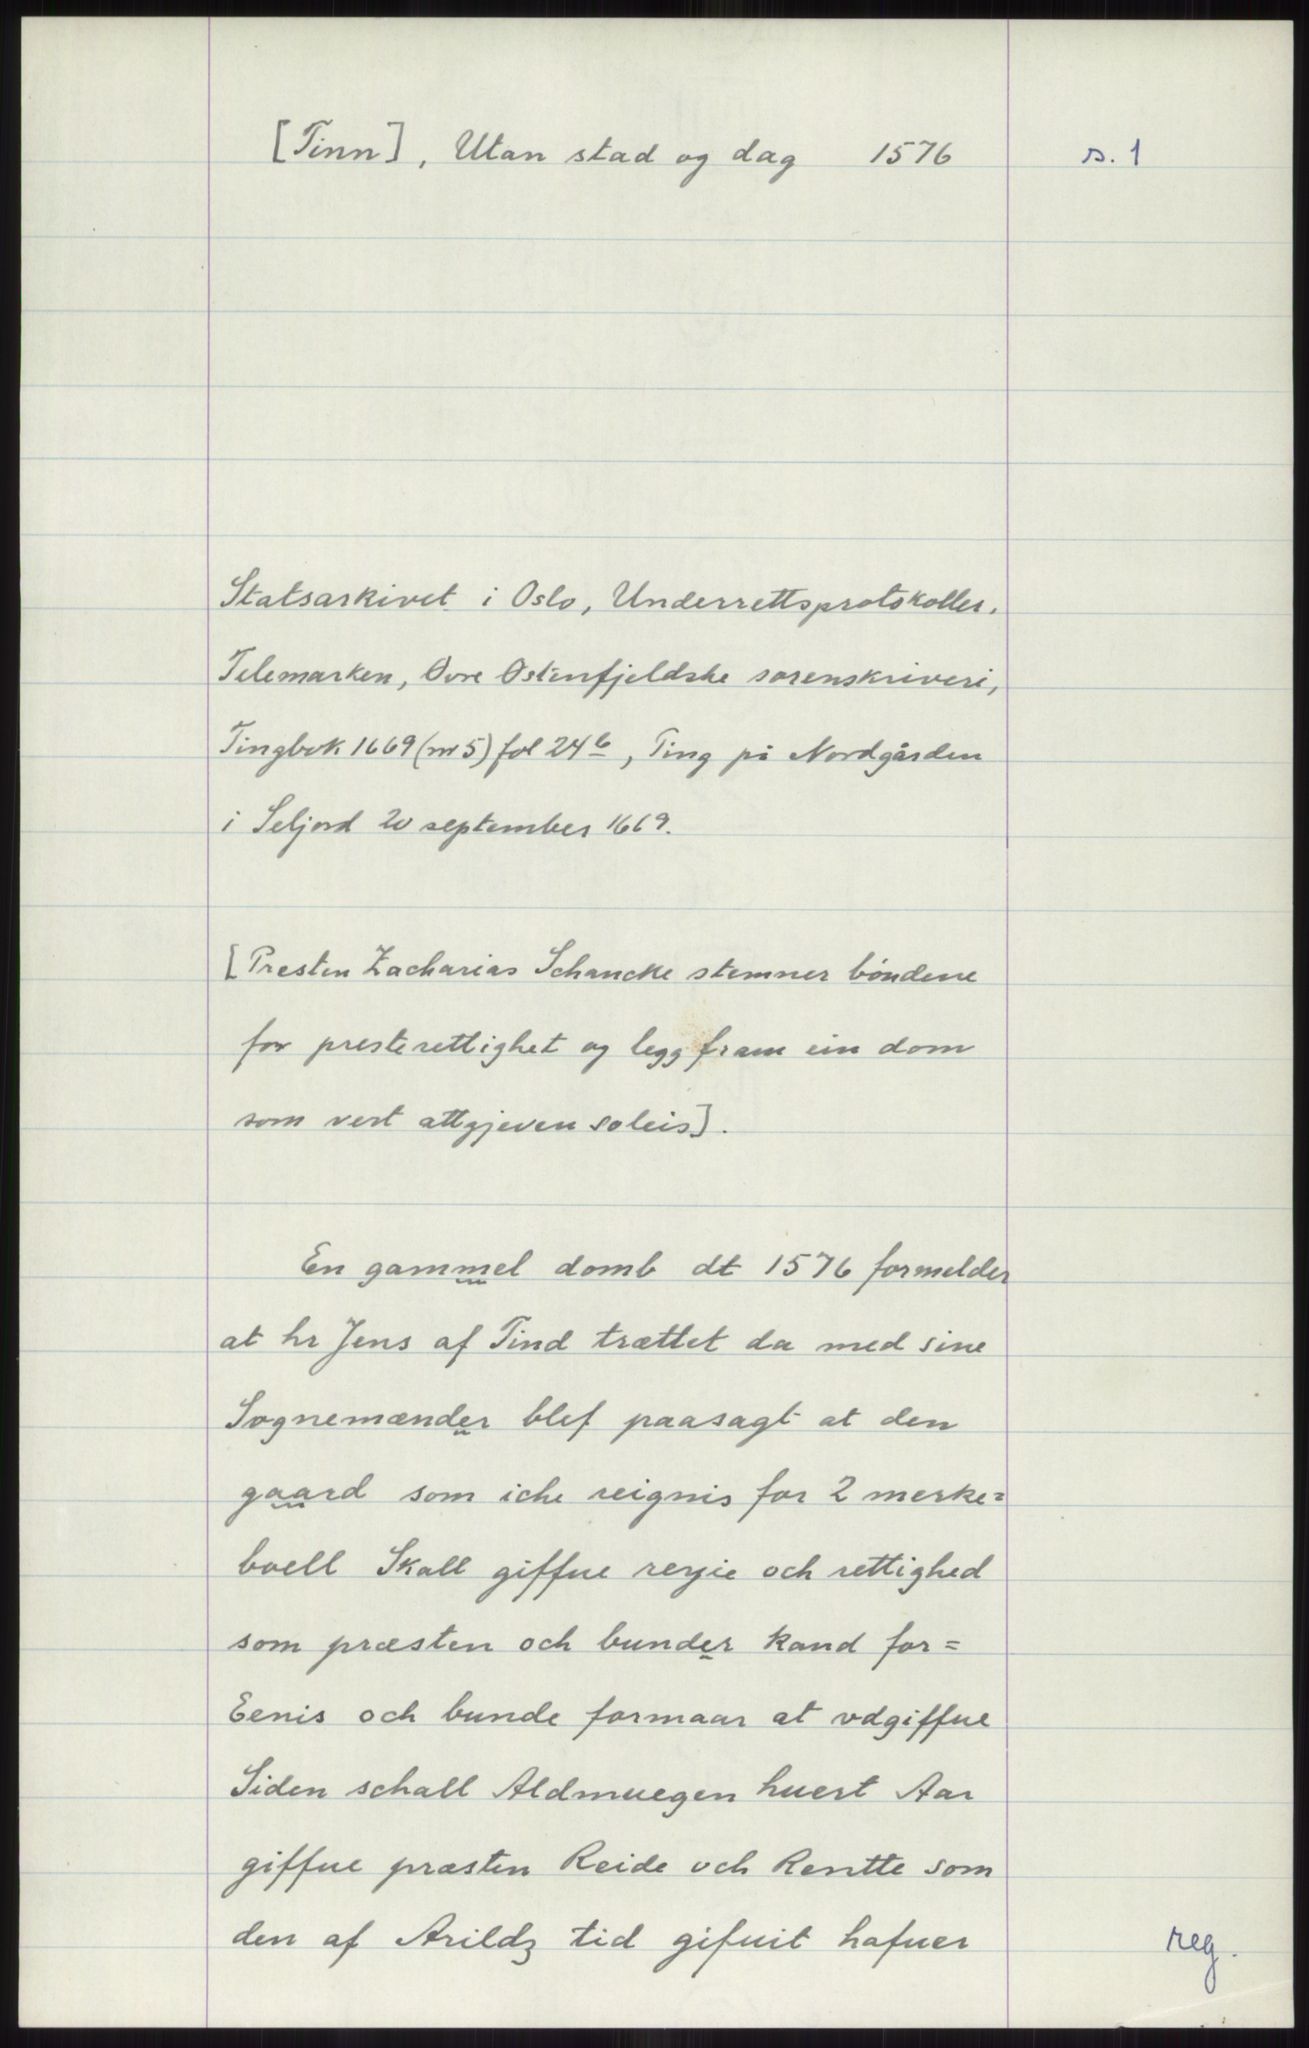 [Tinn], Utan stad og dag 1576 s. 1
Statsarkivet i Oslo, Underrettsprotokoller.
Telemarken, Øvre Østenfjeldske sorenskriveri,
Tingbok 1669 (nr 5) fol 24b, Ting på Nordgården
i Seljord 20 september 1669.
[Presten Zacharias Schancke stemner bøndene
for presterettighet og legg fram ein dom
som vert attgjeven soleis].
En gammel domb dt 1576 formelder
at hr Jens af Tind trættet da med sine
Sognemænder blef paasagt at den
gaard som iche reignis for 2 merke=
boell Skall giffue reyie och rettighed
som præsten och bunder kand for=
Eenis och bunde formaar at vdgiffue
Siden schall Aldmuegen huert Aar
giffue præsten Reide och Rentte som
den af Arildz tid gifuit hafuer
reg.